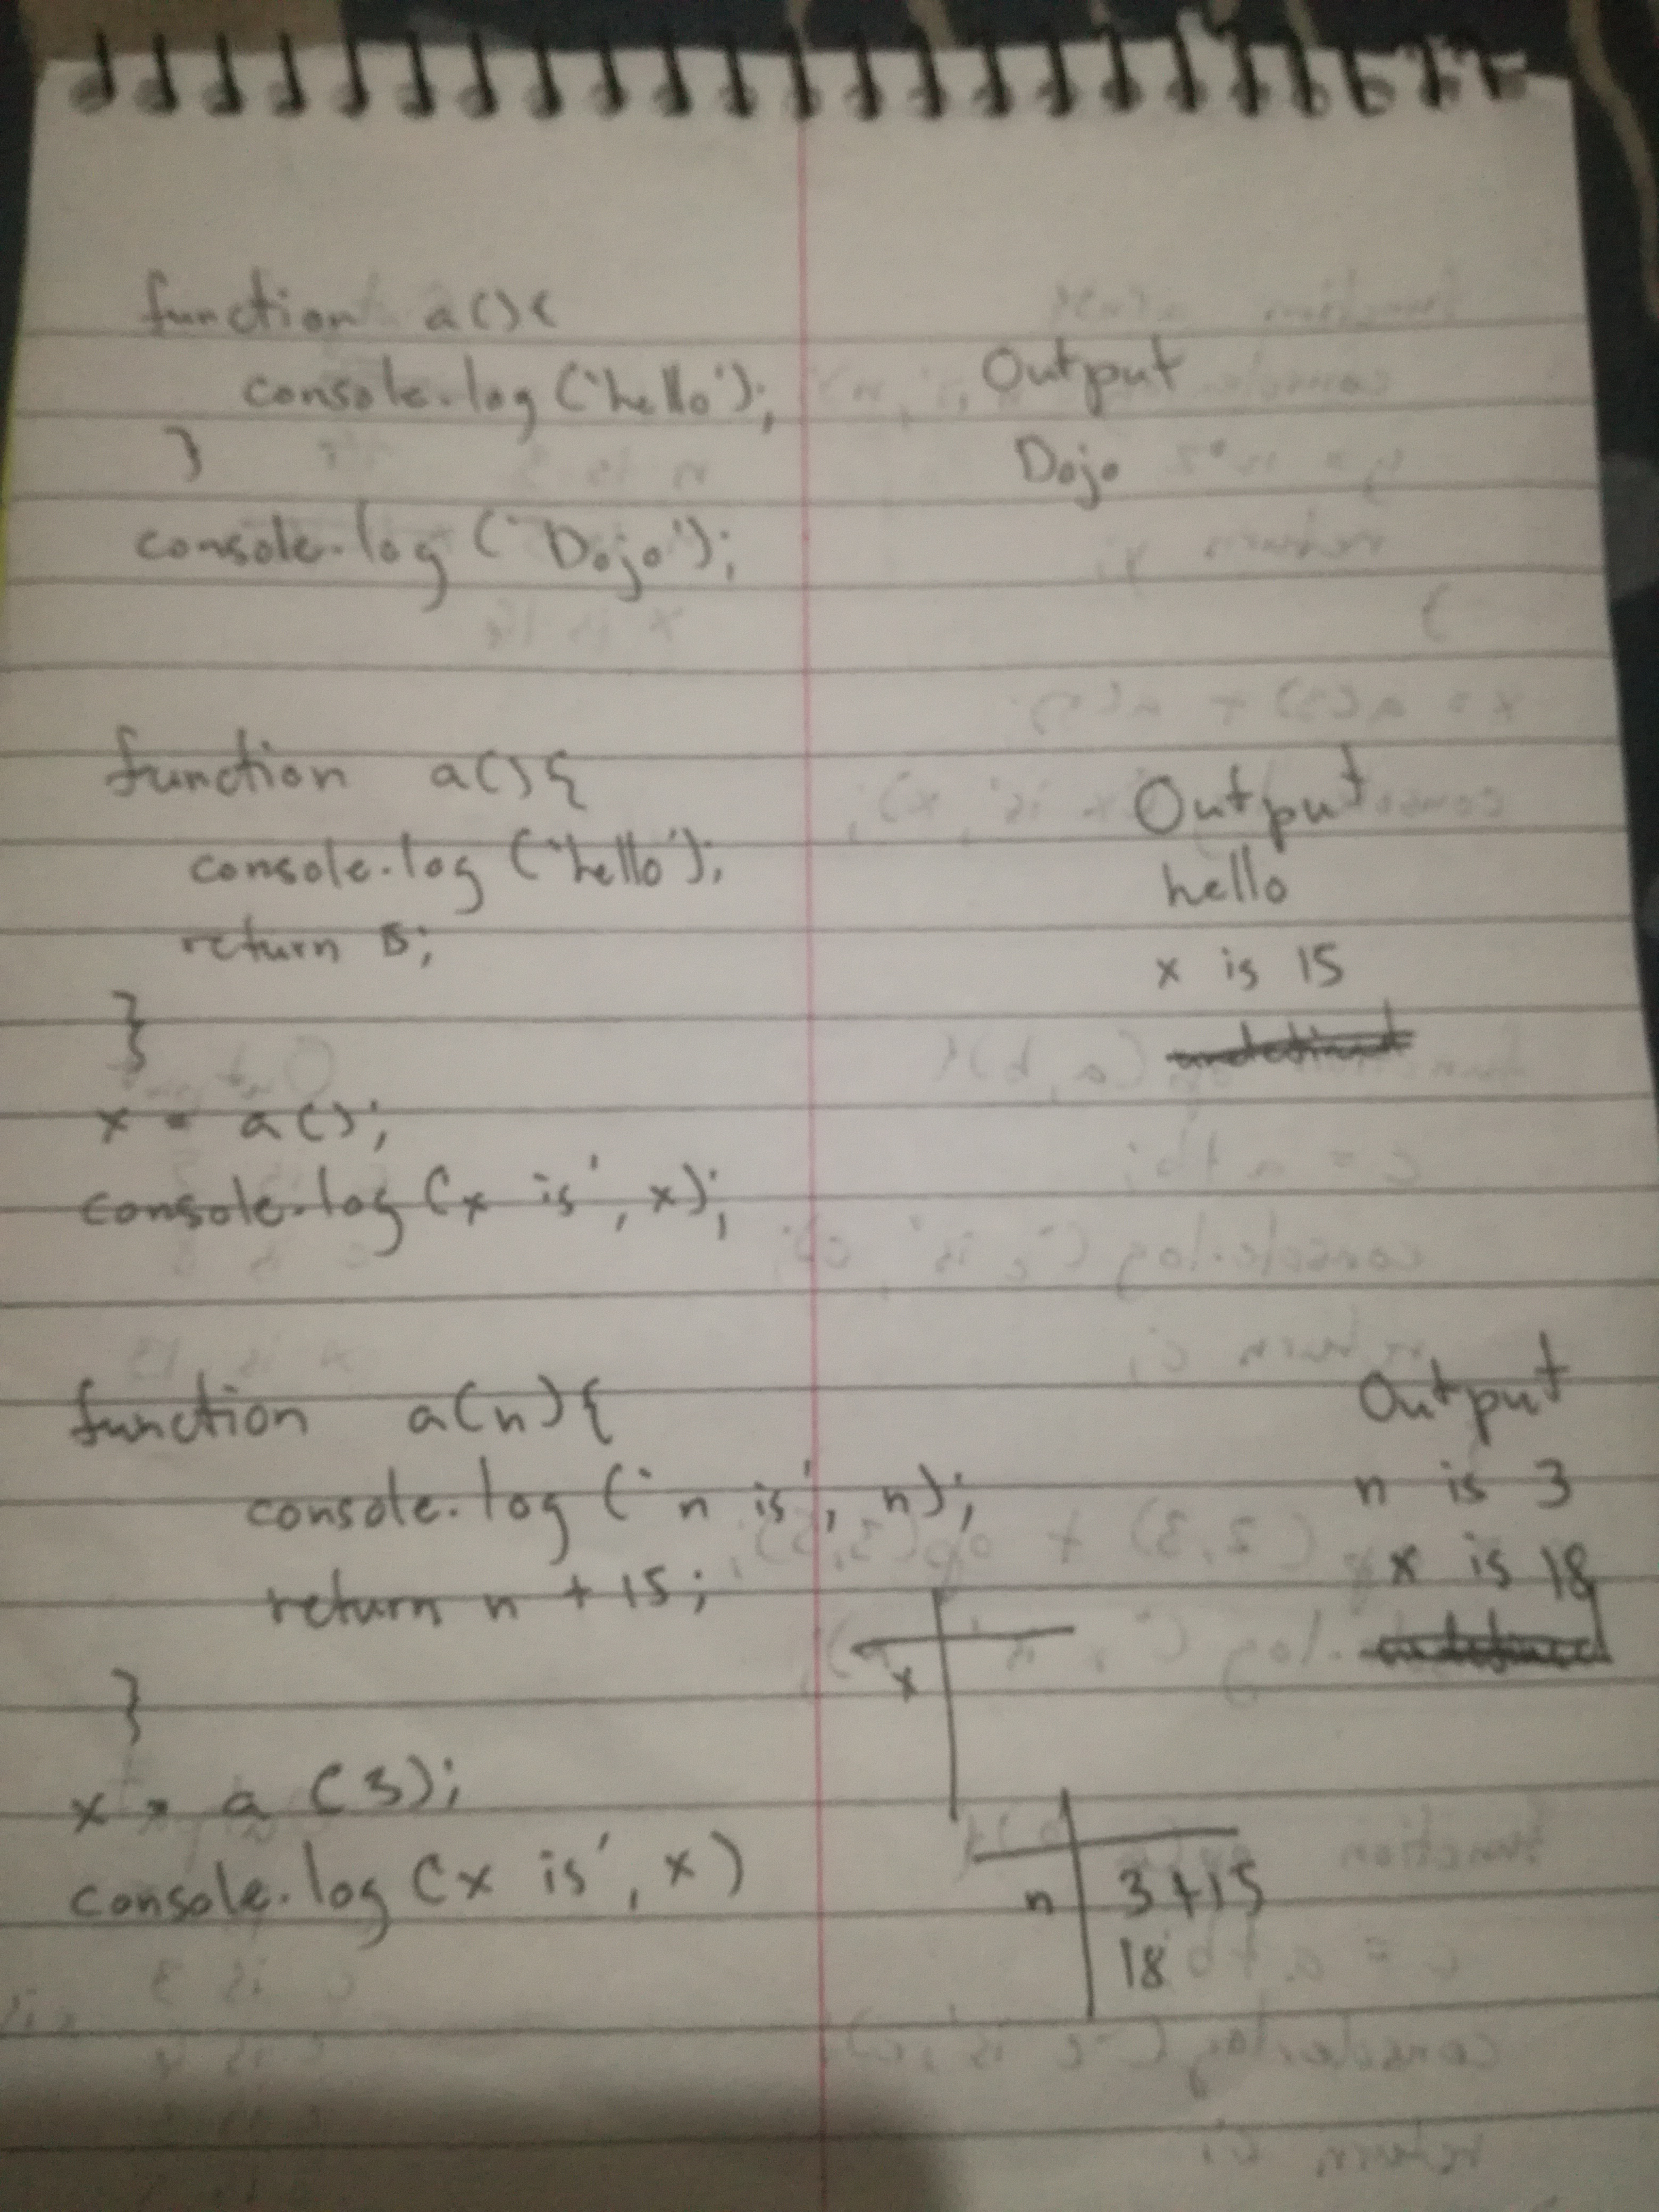 function a(){
console.log('hello');
}
console.log('Dojo');
Output
Dojo
function a(){
console.log('hello');
return 15;
}
x = a();
console.log('x is', x);
Output
hello
x is 15
function a(n){
console.log('n is', n);
return n + 15;
}
x = a(3);
console.log('x is', x)
Output
n is 3
x is 18
x
n 3+15
18